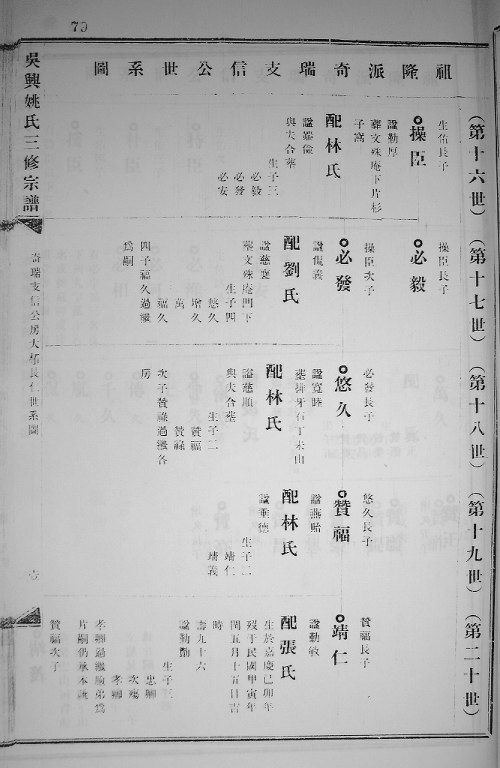 70
祖隆派奇瑞支信公世系圖
（第十六世）
生佑長子
操臣
諡勤厚
葬文殊庵下片杉
子窩
配林氏
諡端儉
與夫合塟
生子三
必毅
必發
必安
（第十七世）
操臣長子
必毅
操臣次子
必發
諡侃義
配劉氏
諡慈襄
塟文殊庵門下
生子四
悠久
增久
萬久
福久
四子福久過繼
為嗣
（第十八世）
必發長子
悠久
諡寬睦
塟排牙石丁未山
配林氏
諡慈順
與夫合塟
生子二
贊福
贊祿
次子贊祿過繼各
房
（第十九世）
悠久長子
贊福
諡燕貽
配林氏
諡垂德
生子二
靖仁
靖義
（第二十世）
贊福長子
靖仁
諡勤敏
配張氏
生於嘉慶己卯年
歿于民國甲寅年
閏五月十五日吉
時
壽九十六
諡勤勷
生子三
忠卿
次殤
孝卿
孝卿過繼
片嗣仍承本
贊福次子
吳興姚氏三修宗譜
奇瑞支信公房大
長仁世系圖
壹